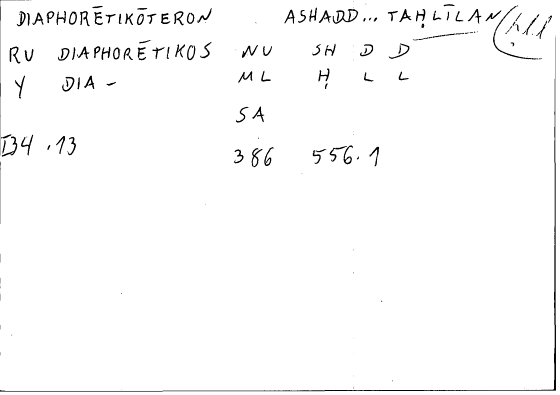 DIAPHORĒTIKŌTERON ASHADD... TAḤLĪLAN (ḥll
RU DIAPHORĒTIKOS NU SH D D
Y DIA- ML Ḥ L L
SA
I34.13 386 556.1